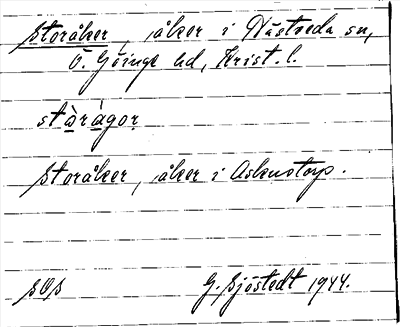 Storåker, åker i Västveda sn,
Ö. Göinge hd, Krist. l.
stòrágor
Storåker, åker i Askustorp.
SOS
G. Sjöstedt 1944.